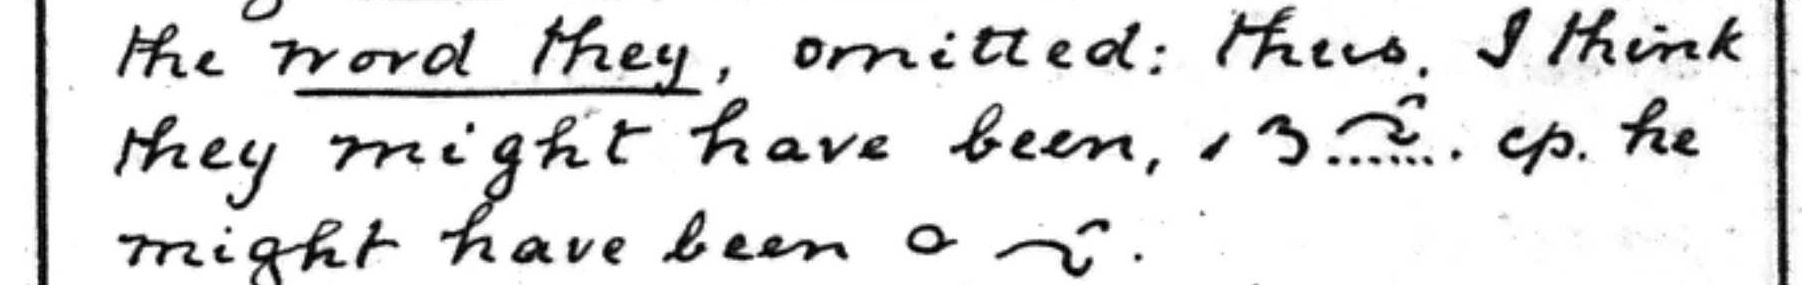 the word they, omitted: thus. I think
they might have been, cp. he
might have been